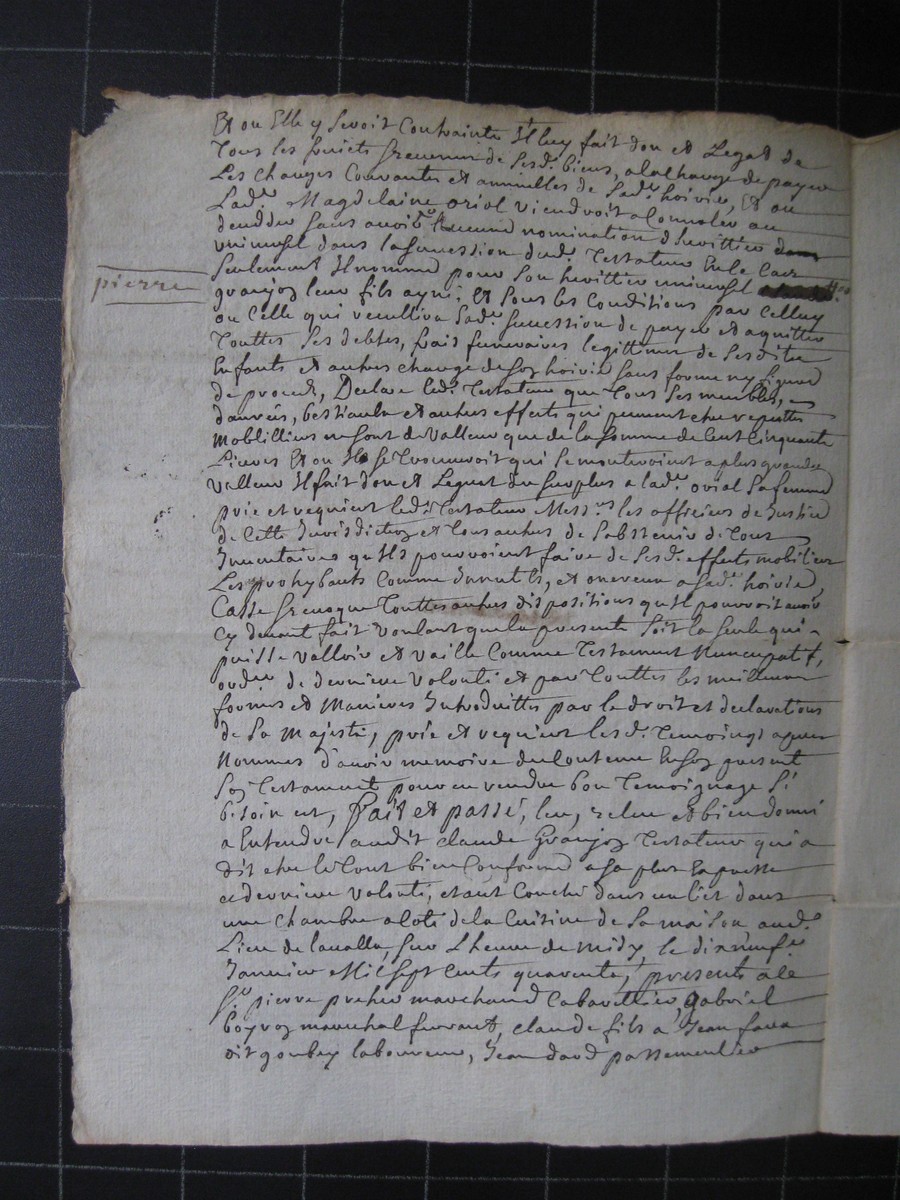 Et ou Elle y seroit Contrainte Il luy fait don et Legat de
Tous les fruicts & revenus de sesd. biens, a la charge de payer
Les charges Courantes et annuelles de sad.e hoirie, Et ou
Lad.e Magdelaine oriol viendroit a Convoler ou
decedder sans avoir fait aucune nomination d'heritier
universel dans la succession dud.t Testateur En ce Cas
seulement Il nomme pour son heritier universel
pierre
granjon leur fils ayné; Et sous les Conditions par Celluy
ou Celle qui receullira sad.e succession de payer et aquitter
Touttes ses debtes, frais funeraires legittimes de sesdits
Enfants et autres charge de son hoirie sans forme ny figure
de procedz, Declare led.t Testateur que Tous ses meubles,
danrées, bestiaulx et autres effects qui peuvent etre reputtés
mobilliers ne sont de valleur que de la somme de Cent Cinquante
Livres Et ou Il se Trouveroit qui se monteroient a plus grande
valleur Il fait don et Legat du surplus a lad.e oriol sa femme
prie et requiert led.t Testateur Mess.rs les officiers de Justice
de Cette Jurisdiction et Tous autres de s'abstenir de Tous
Inventaires qu'Ils pourroient faire de sesd. effects mobiliers
Les prohybants Comme Innutils, et onereux a sad.e hoirie
Casse & revoque Touttes autres dispositions qu'Il pourroit avoir
Cy devant fait voulant que la presente soit la seule qui
puisse valloir et vaille Comme Testament Nuncupatif,
ord.re de derniere volonté et par Touttes les meilleures
formes et Manieres Introduittes par le droit et declarations
de Sa Majesté, prie et requiert les d. Temoings apres
Nommés d'avoir memoire du contenu En son present
son Testament pour en rendre bon Temoignage si
besoin est, Fait et passé, leu, & relue et bien donné
a Entendre audit claude Granjon Testateur qui a
dit etre le Tout bien Conforme a sa plus Expresse
et derniere volonté, etant Couché dans un lict dans
une chambre a coté de la Cuisine de sa maison aud.t
Lieu de lavalla, sur L'heure de midy, le dixneuf.e
Janvier Mil sept Cents quarente, presents a ce
s.r pierre preher marchand Cabarettier, Gabriel
boyron marechal ferrant, claude fils a Jean fara
dit goubey laboureur, Jean davd passementier